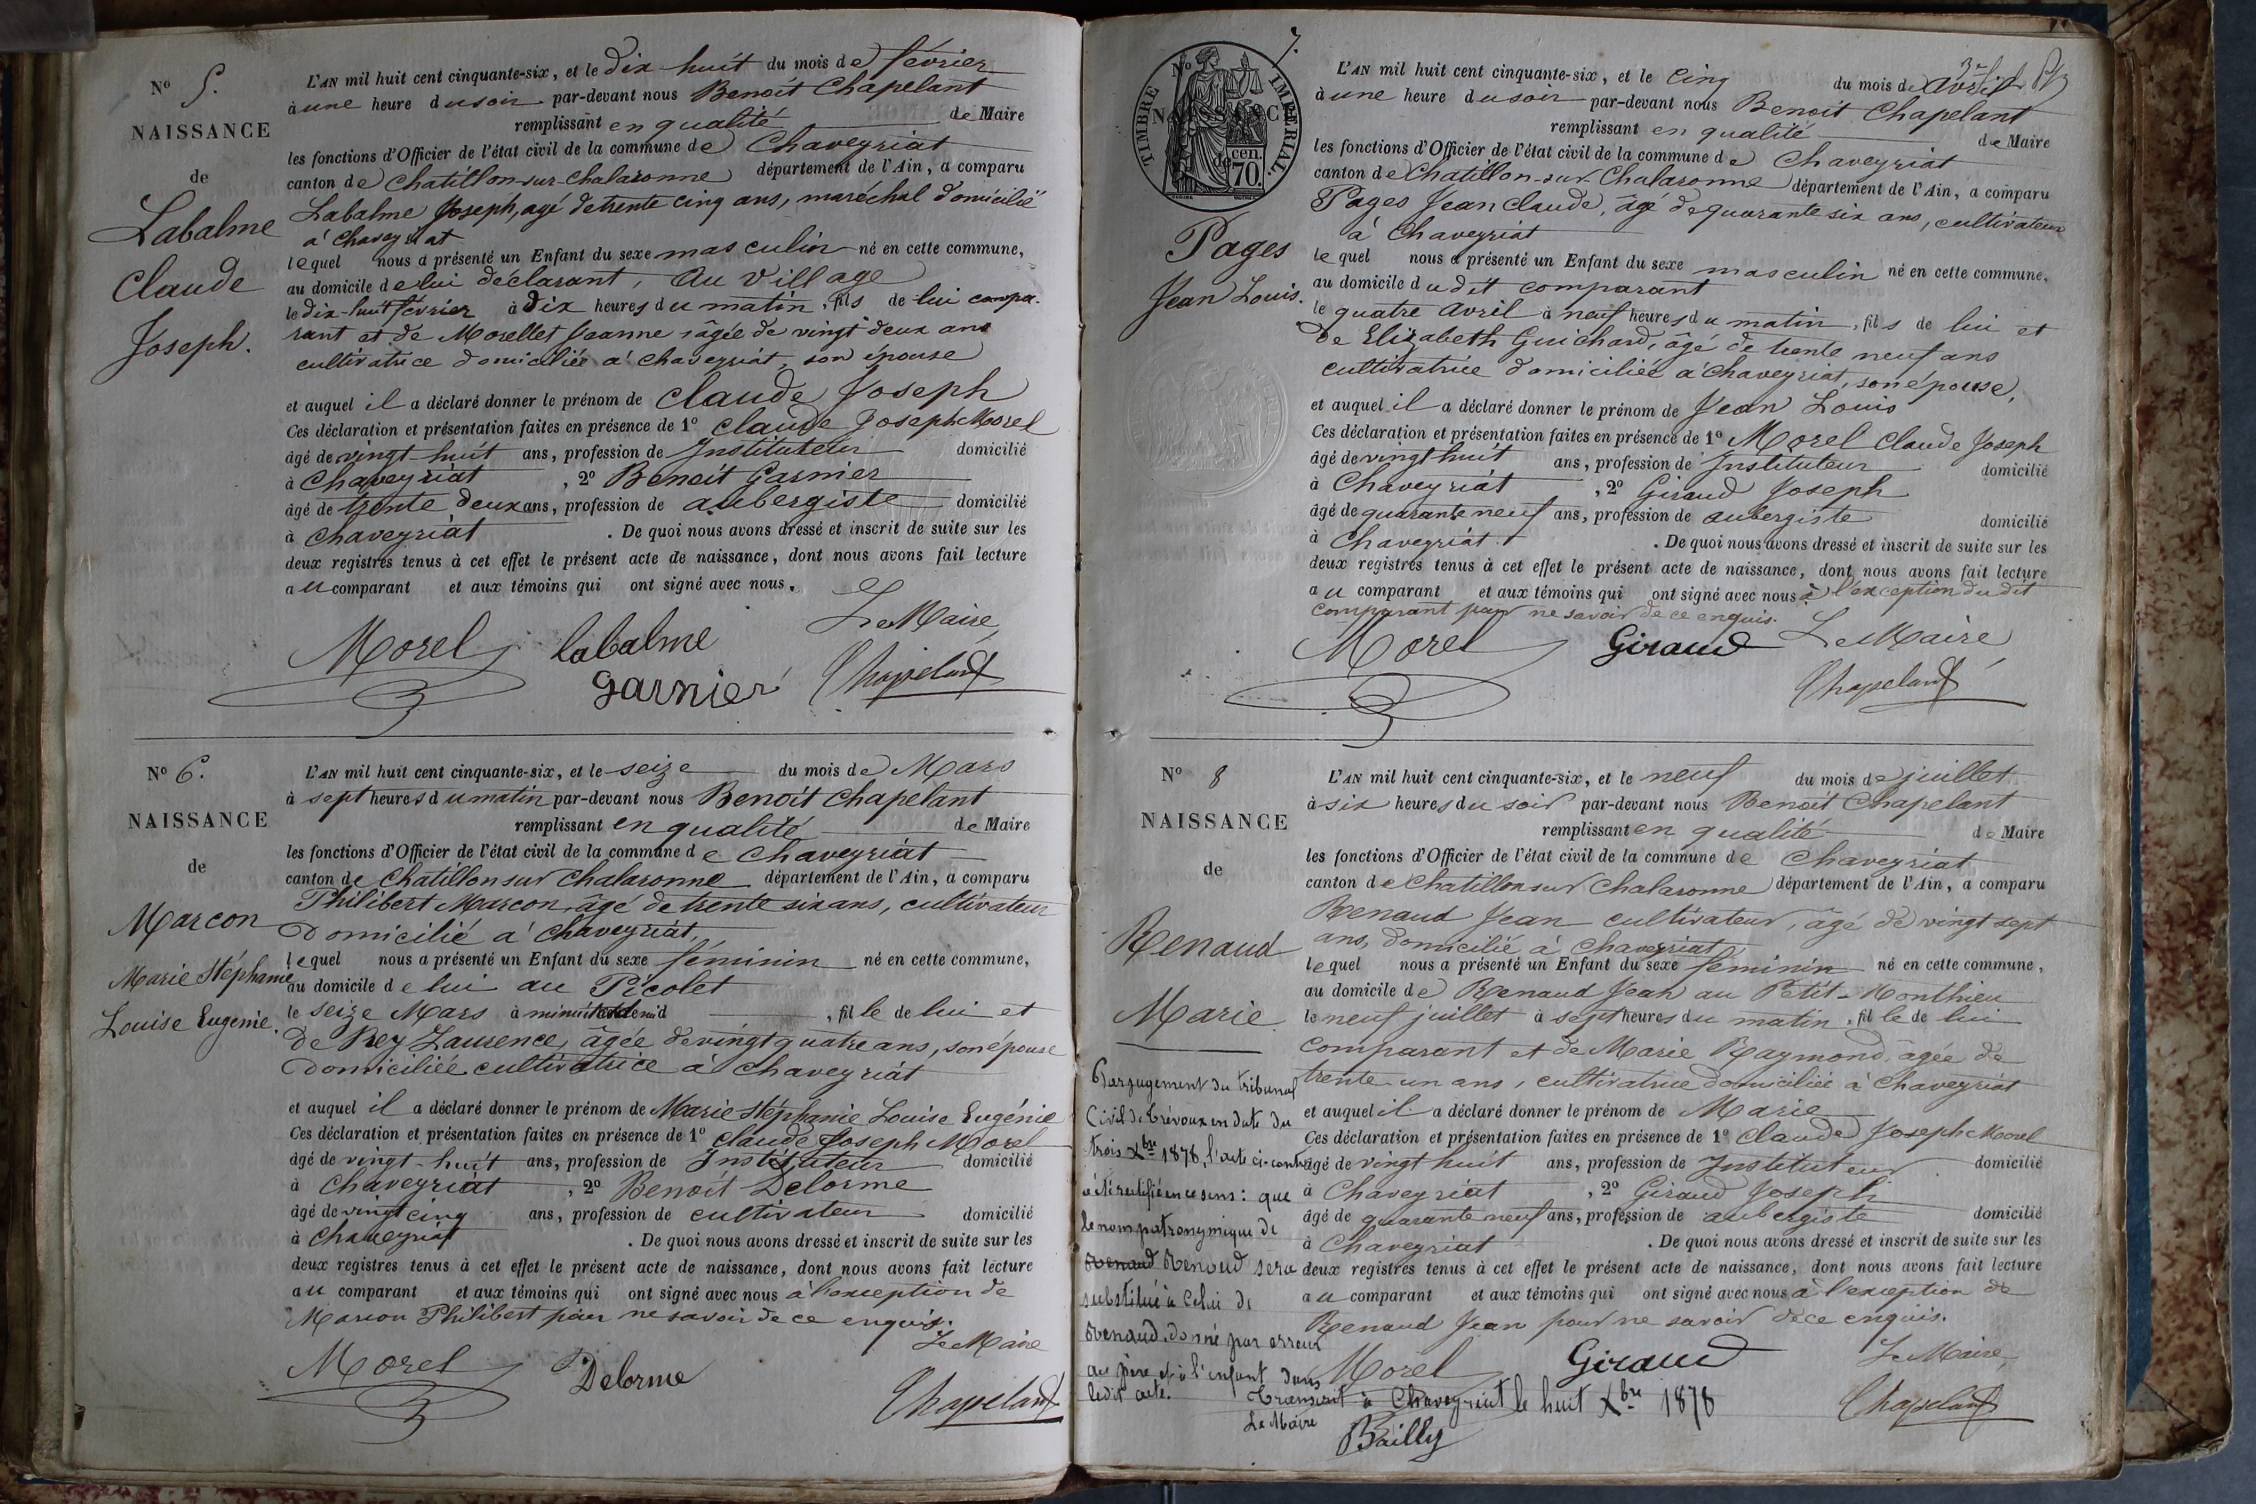 N° 5.
NAISSANCE
de
Labalme
Claude
Joseph.
L'AN mil huit cent cinquante-six, et le dix huit du mois de février
à une heure du soir par-devant nous Benoit Chapelant
remplissant en qualité de Maire
les fonctions d'Officier de l'état civil de la commune de Chaveyriat
canton de Chatillon-sur-Chalaronne département de l'Ain, a comparu
Labalme Joseph, agé de trente cinq ans, maréchal domicilié
à Chaveyriat
lequel nous a présenté un Enfant du sexe masculin né en cette commune,
au domicile de lui déclarant, au village
le dix-huit février à dix heures du matin, fils de lui compa-
rant et de Morellet Jeanne âgée de vingt deux ans
cultivatrice domiciliée à Chaveyriat, son épouse
et auquel il a déclaré donner le prénom de Claude Joseph
Ces déclaration et présentation faites en présence de 1° Claude Joseph Morel
âgé de vingt-huit ans, profession de Instituteur domicilié
à Chaveyriat, 2° Benoit Garnier
âgé de trente deux ans, profession de aubergiste domicilié
à Chaveyriat. De quoi nous avons dressé et inscrit de suite sur les
deux registres tenus à cet effet le présent acte de naissance, dont nous avons fait lecture
au comparant et aux témoins qui ont signé avec nous.
Le Maire,
Morel labalme
garnier Chapelant
N° 6.
NAISSANCE
de
Marcon
Marie Stéphanie
Louise Eugénie.
L'AN mil huit cent cinquante-six, et le seize du mois de Mars
à sept heures du matin par-devant nous Benoit Chapelant
remplissant en qualité de Maire
les fonctions d'Officier de l'état civil de la commune de Chaveyriat
canton de Chatillon sur Chalaronne département de l'Ain, a comparu
Philibert Marcon, âgé de trente six ans, cultivateur
domicilié à Chaveyriat,
lequel nous a présenté un Enfant du sexe féminin né en cette commune,
au domicile de lui au Picolet
le seize Mars à minuit , fille de lui et
de Rey Laurence, âgée de vingt quatre ans, son épouse
domiciliée cultivatrice à Chaveyriat
et auquel il a déclaré donner le prénom de Marie Stéphanie Louise Eugénie
Ces déclaration et présentation faites en présence de 1° Claude Joseph Morel
âgé de vingt-huit ans, profession de Instituteur domicilié
à Chaveyriat, 2° Benoit Delorme
âgé de vingt cinq ans, profession de cultivateur domicilié
à Chaveyriat. De quoi nous avons dressé et inscrit de suite sur les
deux registres tenus à cet effet le présent acte de naissance, dont nous avons fait lecture
au comparant et aux témoins qui ont signé avec nous à l'exception de
Marcon Philibert pour ne savoir de ce enquis.
Le Maire
Morel Delorme
Chapelant
7.
TIMBRE IMPÉRIAL.
cen.
70.
N°
NAISSANCE
de
Pages
Jean Louis.
L'AN mil huit cent cinquante-six, et le cinq du mois de avril
à une heure du soir par-devant nous Benoit Chapelant
remplissant en qualité de Maire
les fonctions d'Officier de l'état civil de la commune de Chaveyriat
canton de Chatillon-sur-Chalaronne département de l'Ain, a comparu
Pages Jean Claude, âgé de quarante six ans, cultivateur
à Chaveyriat
lequel nous a présenté un Enfant du sexe masculin né en cette commune,
au domicile dudit comparant
le quatre avril à neuf heures du matin, fils de lui et
de Elizabeth Guichard, âgé de trente neuf ans
cultivatrice domiciliée à Chaveyriat, son épouse,
et auquel il a déclaré donner le prénom de Jean Louis
Ces déclaration et présentation faites en présence de 1° Morel Claude Joseph
âgé de vingt huit ans, profession de Instituteur domicilié
à Chaveyriat, 2° Giraud Joseph
âgé de quarante neuf ans, profession de aubergiste domicilié
à Chaveyriat. De quoi nous avons dressé et inscrit de suite sur les
deux registres tenus à cet effet le présent acte de naissance, dont nous avons fait lecture
au comparant et aux témoins qui ont signé avec nous à l'exception du dit
comparant pour ne savoir de ce enquis.
Le Maire
Morel Giraud
Chapelant
N° 8
NAISSANCE
de
Renaud
Marie
L'AN mil huit cent cinquante-six, et le neuf du mois de juillet
à six heures du soir par-devant nous Benoit Chapelant
remplissant en qualité de Maire
les fonctions d'Officier de l'état civil de la commune de Chaveyriat
canton de Chatillon sur Chalaronne département de l'Ain, a comparu
Renaud Jean cultivateur, âgé de vingt sept
ans, domicilié à Chaveyriat
lequel nous a présenté un Enfant du sexe féminin né en cette commune,
au domicile de Renaud Jean au Petit-Monthieu
le neuf juillet à sept heures du matin, fille de lui
comparant et de Marie Raymond, âgée de
trente-un ans, cultivatrice domiciliée à Chaveyriat
et auquel il a déclaré donner le prénom de Marie
Ces déclaration et présentation faites en présence de 1° Claude Joseph Morel
âgé de vingt huit ans, profession de Instituteur domicilié
à Chaveyriat, 2° Giraud Joseph
âgé de quarante neuf ans, profession de aubergiste domicilié
à Chaveyriat. De quoi nous avons dressé et inscrit de suite sur les
deux registres tenus à cet effet le présent acte de naissance, dont nous avons fait lecture
au comparant et aux témoins qui ont signé avec nous à l'exception de
Renaud Jean pour ne savoir de ce enquis.
Le Maire,
Morel Giraud
Chapelant
Par jugement du tribunal
Civil de Trévoux en date du
trois Xbre 1878, l'acte ci-contre
a été rectifié en ce sens : que
le nom patronymique de
Renaud Renoud sera
substitué à celui de
Renaud, donné par erreur
au père et à l'enfant dans
ledit acte.
Transcrit à Chaveyriat le huit Xbre 1878
Le Maire
Bailly